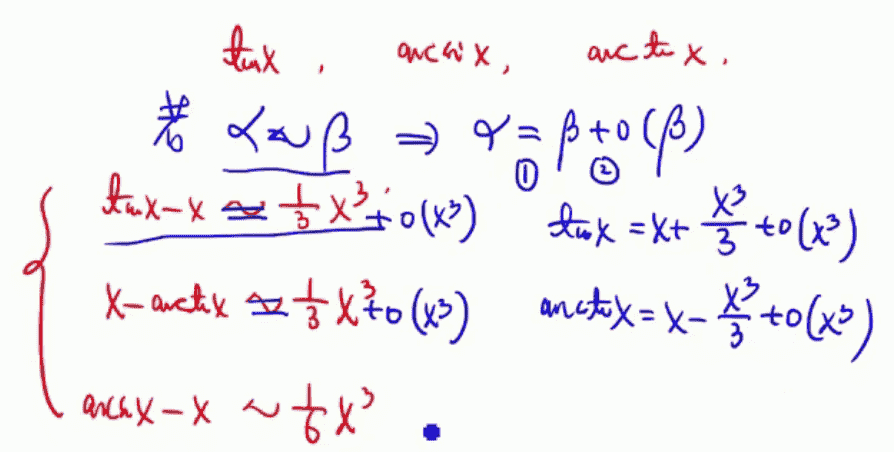 tanx , arcsinx, arctanx.
若 α~β ⇒ α = β + o(β)
① ②
tanx-x ≃ 1/3 x³ + o(x³) tanx = x + x³/3 + o(x³)
x-arctanx ≃ 1/3 x³ + o(x³) arctanx = x - x³/3 + o(x³)
arcsinx-x ~ 1/6 x³